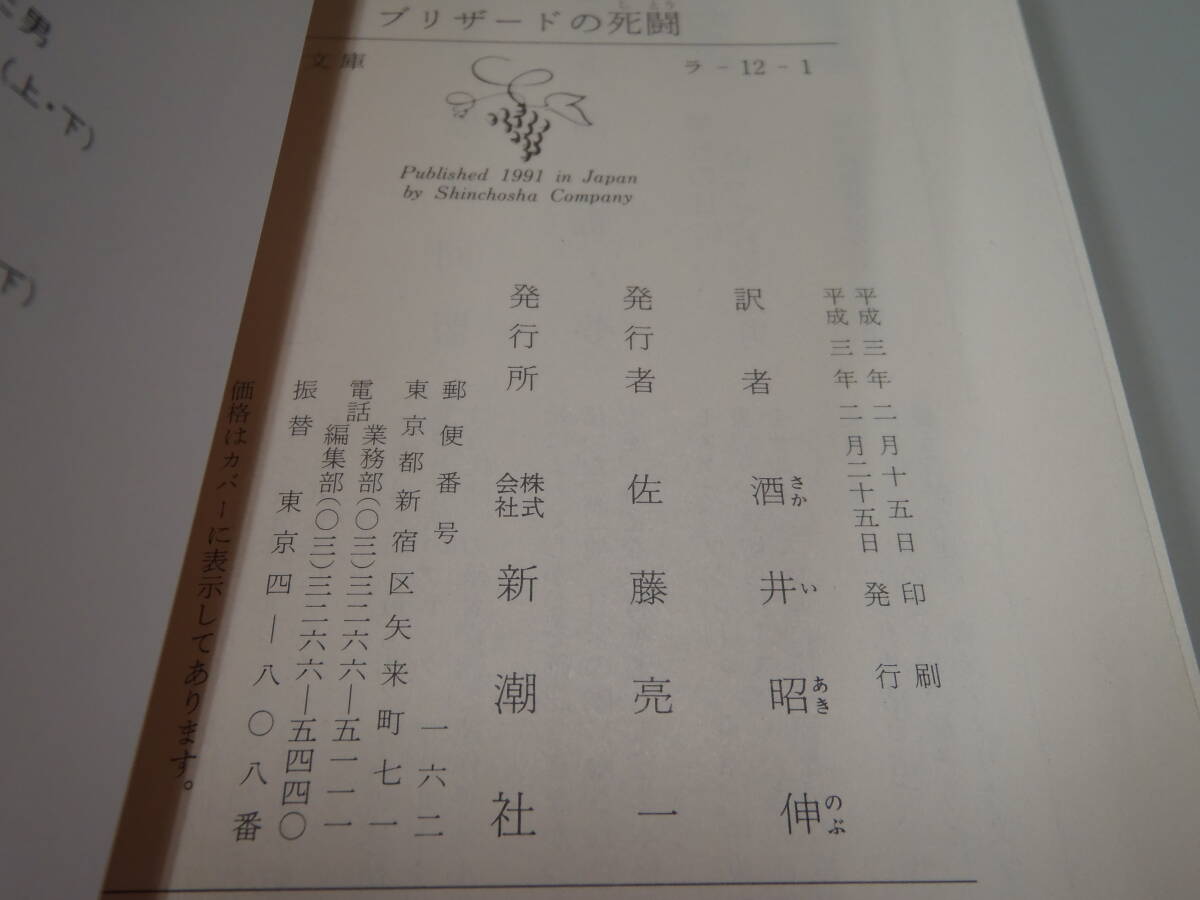 ブリザードの死闘
しとう
文庫
ラ-12-1
Published 1991 in Japan
by Shinchosha Company
平成三年二月十五日 印刷
平成三年二月二十五日 発行
訳者 酒井昭伸
さかいあきのぶ
発行者 佐藤亮一
発行所 株式会社 新潮社
郵便番号 一六二
東京都新宿区矢来町七一
電話 業務部(〇三)三二六六―五一一一
編集部(〇三)三二六六―五四四〇
振替 東京四―八〇八番
価格はカバーに表示してあります。
男
(上・下)
下)